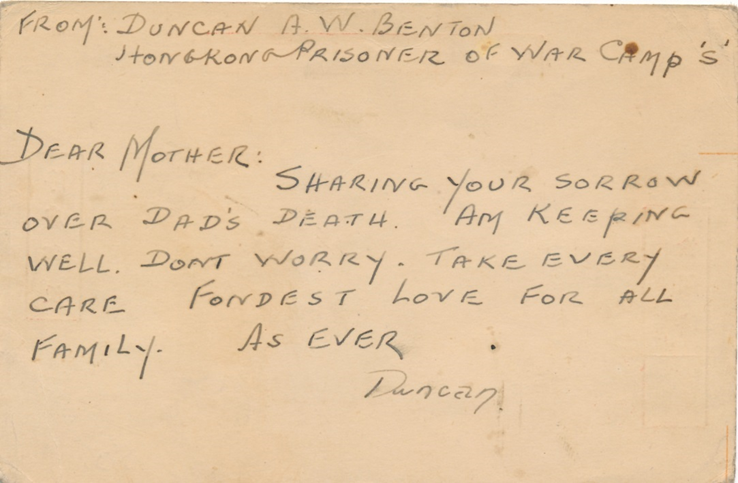 FROM: DUNCAN A. W. BENTON
HONGKONG PRISONER OF WAR CAMP 'S'
DEAR MOTHER:
SHARING YOUR SORROW
OVER DAD'S DEATH. AM KEEPING
WELL. DONT WORRY. TAKE EVERY
CARE FONDEST LOVE FOR ALL
FAMILY. AS EVER
Duncan.